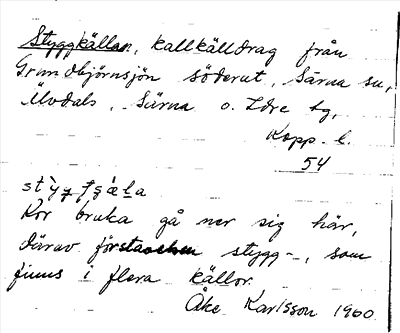 Styggkällan, kallkälldrag från
Grundbjörnsjön söderut, Särna sn,
Älvdals, Särna o. Idre tg,
Kopp. l.
54
Kor bruka gå ner sig här,
därav förstavelsen stygg-, som
finns i flera källor.
Åke Karlsson 1960